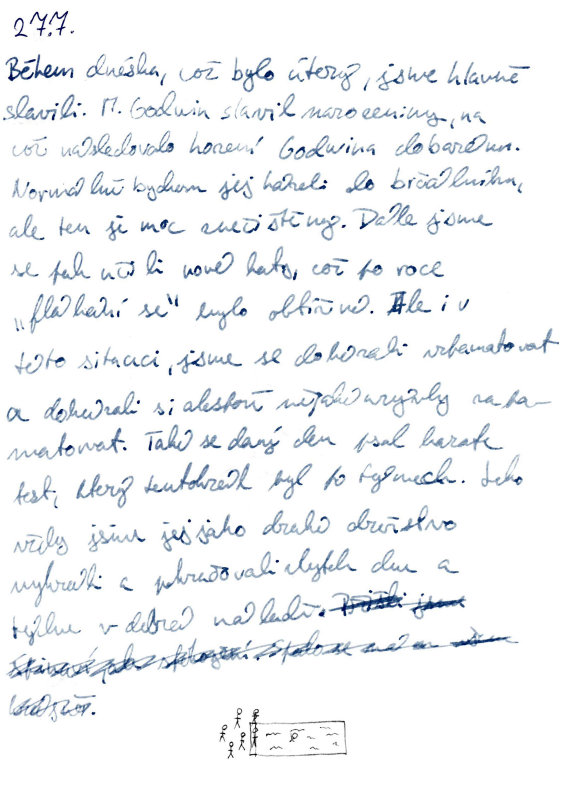 27.7.
Během dneška, což bylo úterý, jsme hlavně
slavili. M. Godwin slavil narozeniny, na
což následovalo hození Godwina do bazénu.
Normálně bychom jej házeli do brčálníku,
ale ten je moc znečištěný. Dále jsme
se pak učili nové katy, což po roce
„flákání se" bylo obtížné. Ale i v
této situaci, jsme se dokázali vzpamatovat
a dokázali si alespoň nějaké zapa-
matovat. Také se daný den psal karate
test, který tentokrát byl po týmech. Jako
vždy jsme jej jako druhé družstvo
vyhráli a pokračovali zbytek dne a
týdne v dobré náladě.